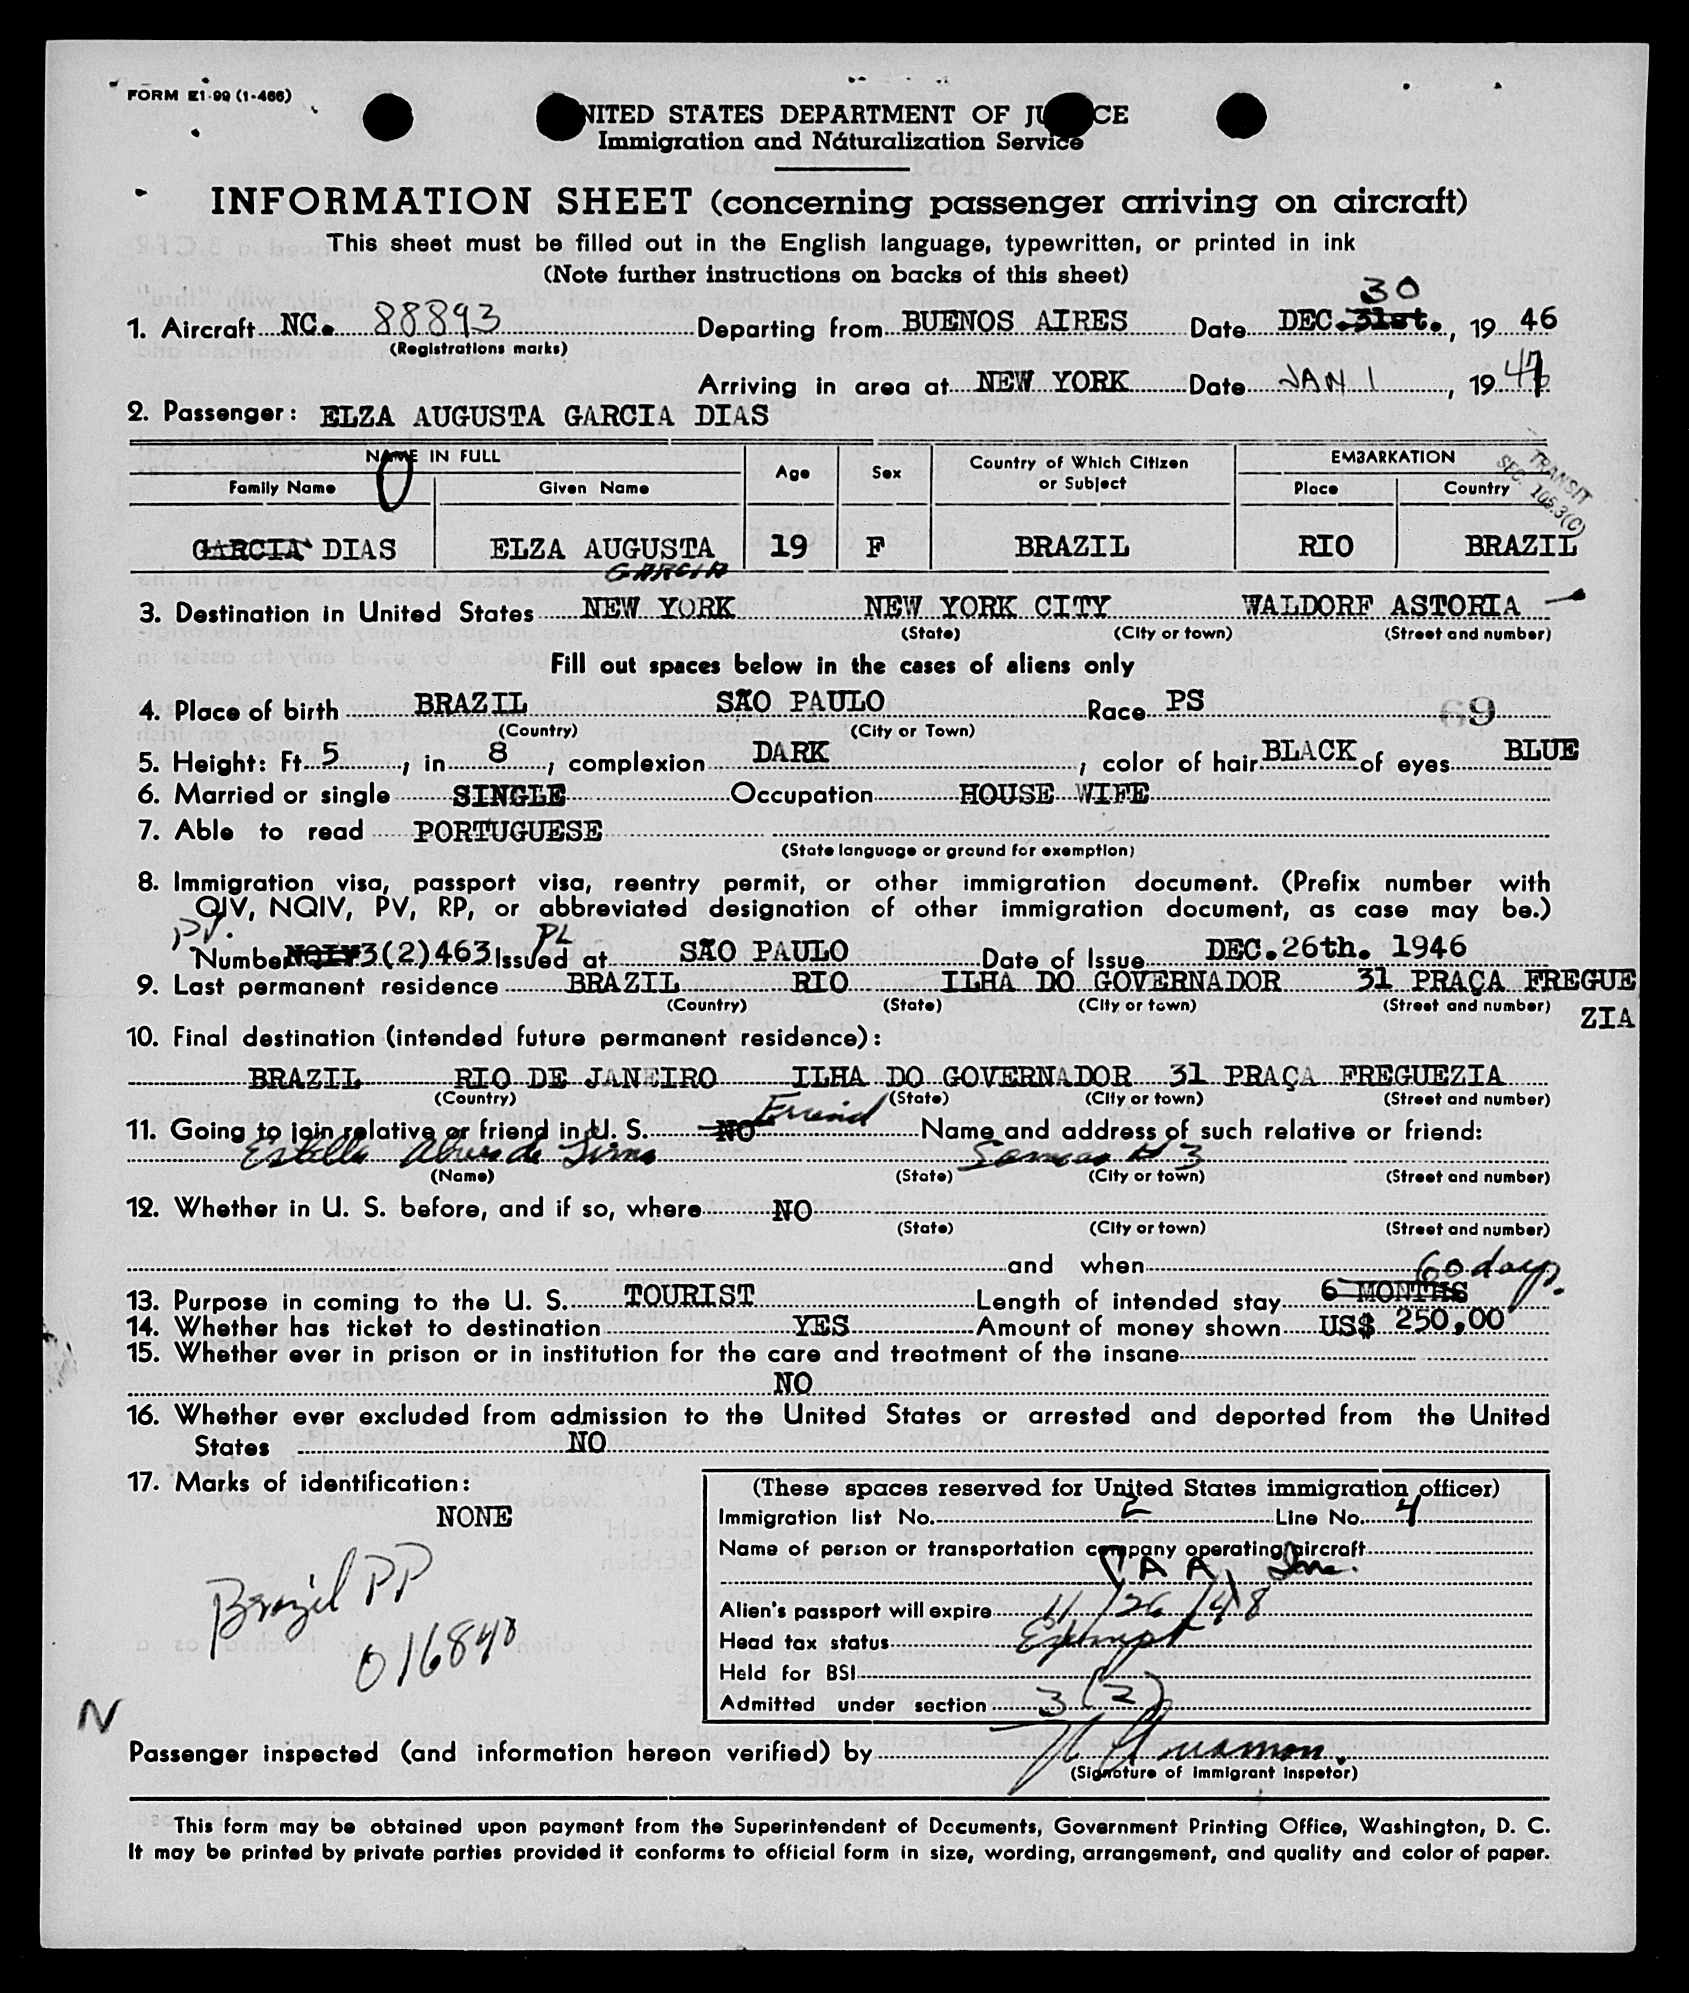 FORM I-99 (1-466)
UNITED STATES DEPARTMENT OF JUSTICE
Immigration and Naturalization Service
INFORMATION SHEET (concerning passenger arriving on aircraft)
This sheet must be filled out in the English language, typewritten, or printed in ink
(Note further instructions on backs of this sheet)
30
1. Aircraft NC. 88893 Departing from BUENOS AIRES Date DEC. 31st., 19 46
(Registrations marks)
Arriving in area at NEW YORK Date JAN 1, 19 47
2. Passenger: ELZA AUGUSTA GARCIA DIAS
NAME IN FULL Age Sex Country of Which Citizen or Subject EMBARKATION
Family Name Given Name Place Country
TRANSIT
SEC. 105.3(C)
GARCIA DIAS ELZA AUGUSTA 19 F BRAZIL RIO BRAZIL
GARCIA
3. Destination in United States NEW YORK NEW YORK CITY WALDORF ASTORIA
(State) (City or town) (Street and number)
Fill out spaces below in the cases of aliens only
4. Place of birth BRAZIL SÃO PAULO Race PS 69
(Country) (City or Town)
5. Height: Ft. 5, in. 8, complexion DARK; color of hair BLACK of eyes BLUE
6. Married or single SINGLE Occupation HOUSE WIFE
7. Able to read PORTUGUESE
(State language or ground for exemption)
8. Immigration visa, passport visa, reentry permit, or other immigration document. (Prefix number with
QIV, NQIV, PV, RP, or abbreviated designation of other immigration document, as case may be.)
PV. PL
Number NQIV 3(2)463 Issued at SÃO PAULO Date of Issue DEC. 26th. 1946
9. Last permanent residence BRAZIL RIO ILHA DO GOVERNADOR 31 PRAÇA FREGUE
(Country) (State) (City or town) (Street and number) ZIA
10. Final destination (intended future permanent residence):
BRAZIL RIO DE JANEIRO ILHA DO GOVERNADOR 31 PRAÇA FREGUEZIA
(Country) (State) (City or town) (Street and number)
11. Going to join relative or friend in U. S. NO Friend Name and address of such relative or friend:
Estella Alves de Lima Same as # 3
(Name) (State) (City or town) (Street and number)
12. Whether in U. S. before, and if so, where NO
(State) (City or town) (Street and number)
and when
60 days.
13. Purpose in coming to the U. S. TOURIST Length of intended stay 6 MONTHS
14. Whether has ticket to destination YES Amount of money shown US$ 250,00
15. Whether ever in prison or in institution for the care and treatment of the insane
NO
16. Whether ever excluded from admission to the United States or arrested and deported from the United
States NO
17. Marks of identification:
NONE
Brazil PP
016840
N
(These spaces reserved for United States immigration officer)
Immigration list No. 2 Line No. 4
Name of person or transportation company operating aircraft
PAA, Inc.
Alien's passport will expire 11/26/48
Head tax status Exempt
Held for BSI
Admitted under section 3(2)
Passenger inspected (and information hereon verified) by
(Signature of Immigrant Inspetor)
This form may be obtained upon payment from the Superintendent of Documents, Government Printing Office, Washington, D. C.
It may be printed by private parties provided it conforms to official form in size, wording, arrangement, and quality and color of paper.